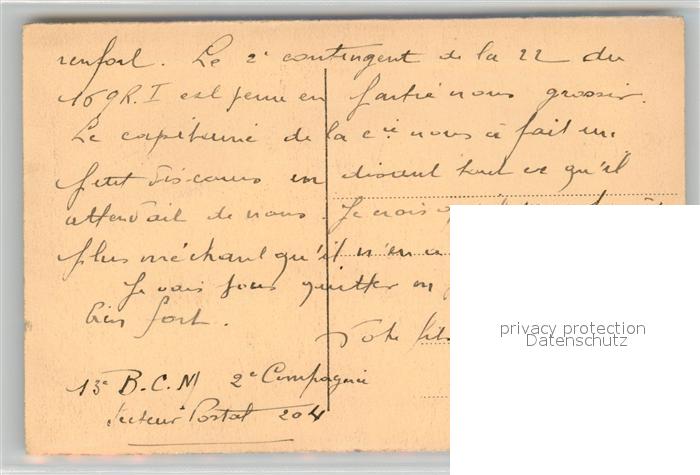 renfort. Le 2e contingent de la 22 du
169 R.I est venu en partie nous grossir.
Le capitaine de la cie nous a fait un
petit discours en disant tout ce qu'il
attendait de nous. Je crois
plus méchant qu'il n'en a
Je vais vous quitter en
bien fort.
Votre fils
13e B.C.M 2e Compagnie
Secteur Postal 204
privacy protection
Datenschutz